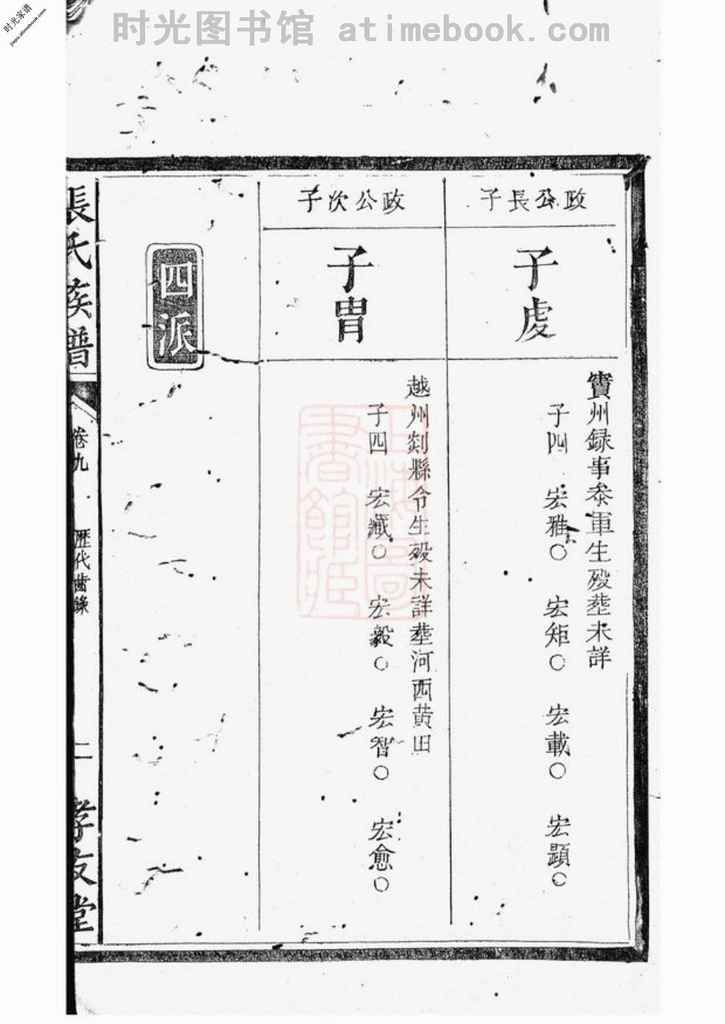 时光图书馆 atimebook.com
时光家谱
政公長子
子虔
賓州録事叅軍生殁塟未詳
子四 宏雅○ 宏矩○ 宏載○ 宏顯○
政公次子
子胄
越州剡縣令生殁未詳塟河西黄田
子四 宏藏○ 宏毅○ 宏智○ 宏愈○
四派
張氏族譜
卷九
歷代齒錄
二
孝友堂